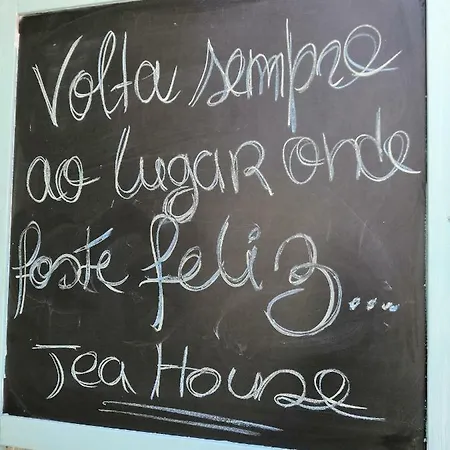 Volta sempre
ao lugar onde
foste feliz...
Tea House